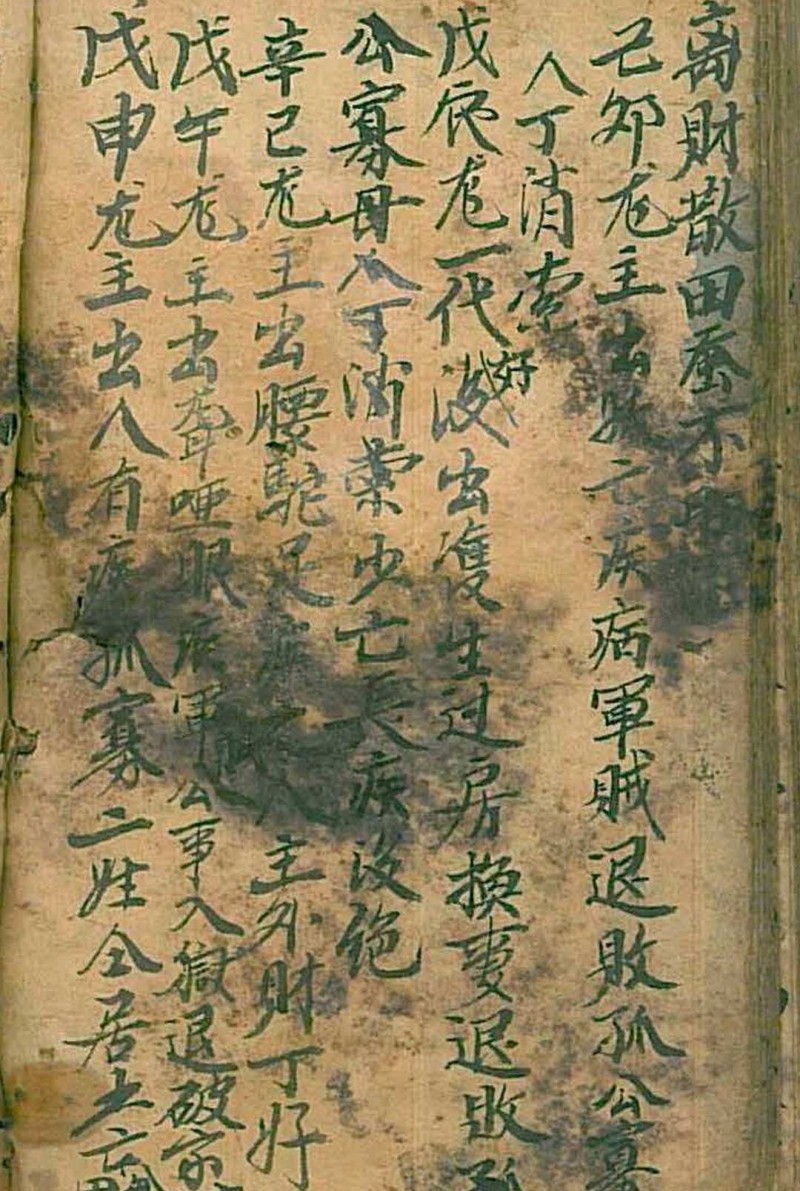 离財散田蚕不旺
己卯龙主出少亡疾病軍賊退敗孤公寡
人丁消索
戊辰龙一代好後出双生过房換妻退敗孤
公寡母人丁消索少亡長疾没絶
辛巳龙主出腰駝足疾之人主外財丁好
戊午龙主出聋哑眼疾軍公事入獄退破家
戊申龙主出人有疾孤寡二姓仝居少亡